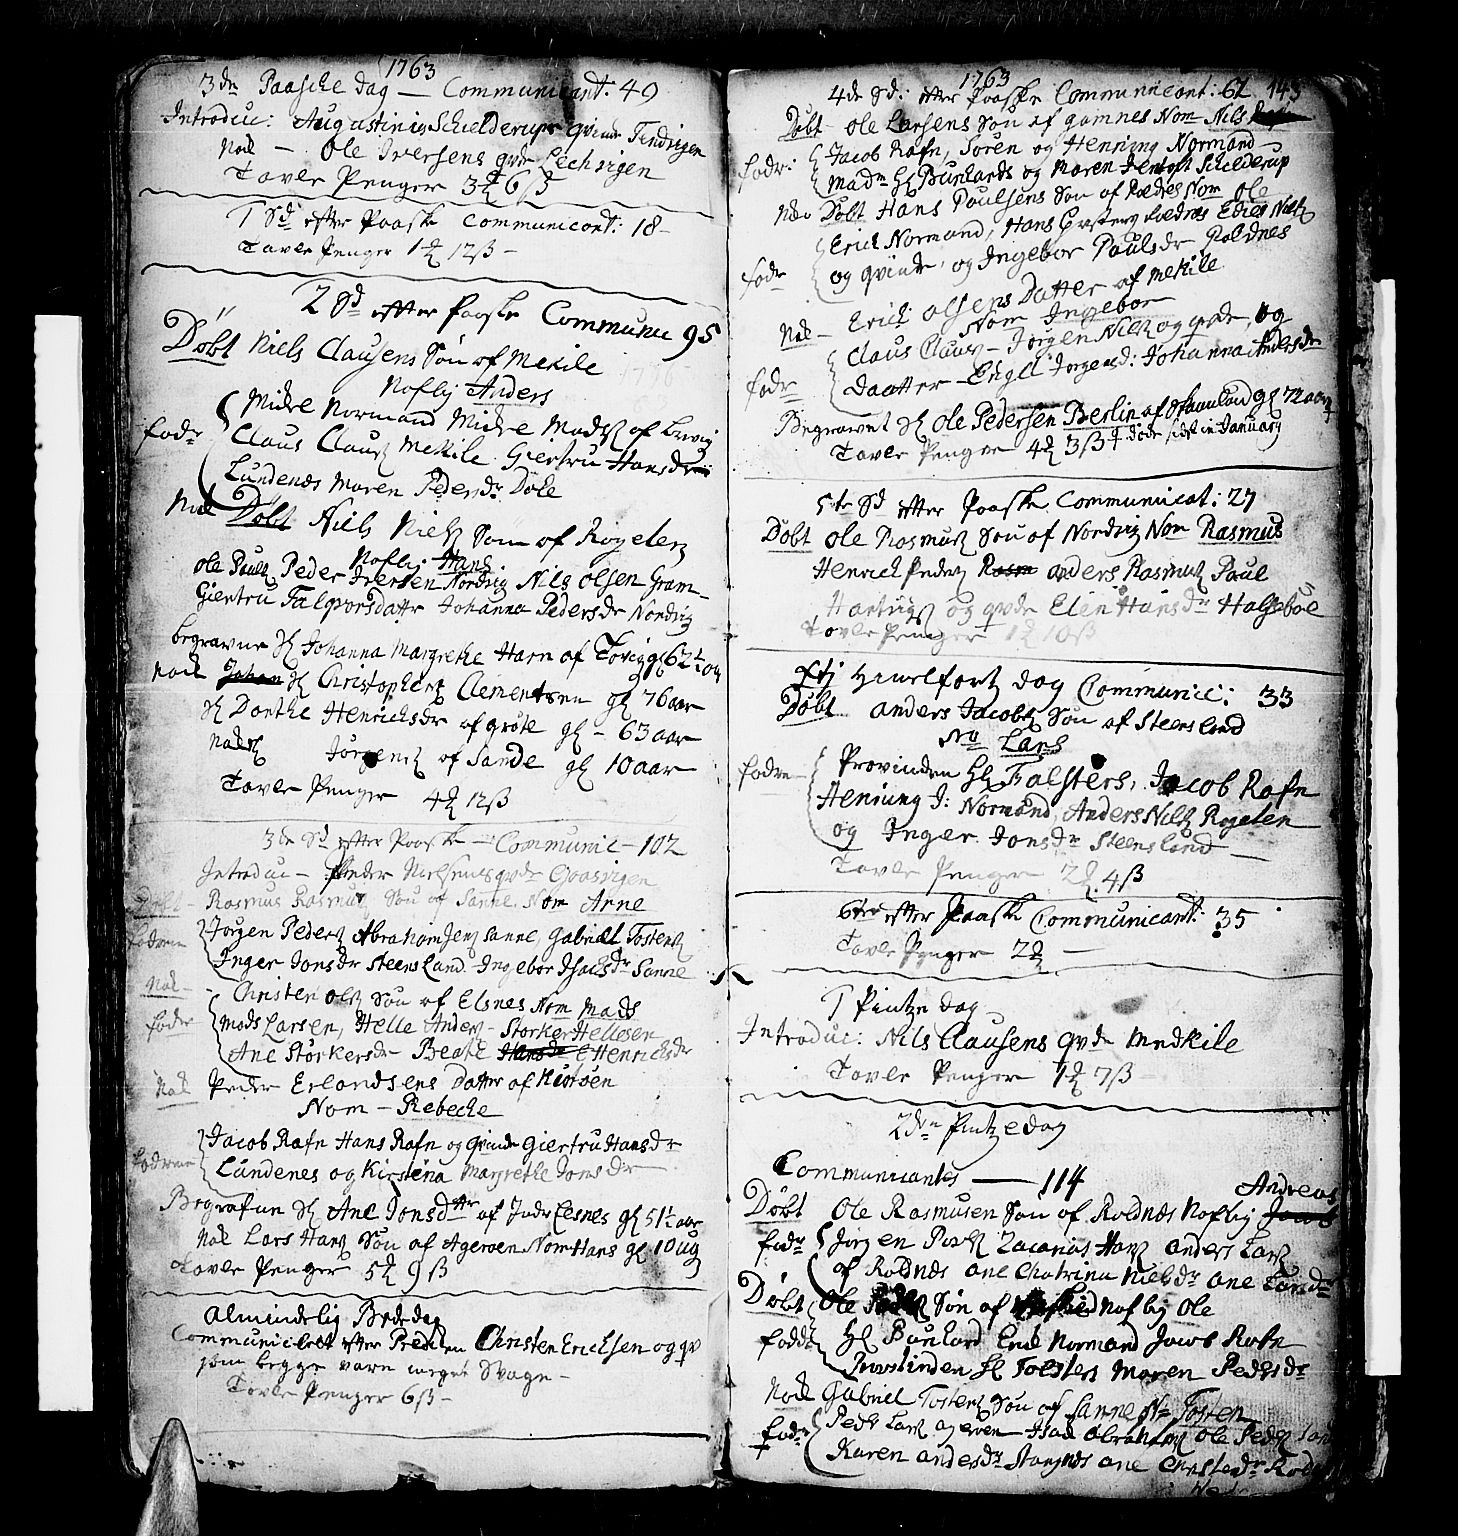 1763
3de Paasche dag — Communicant: 49
Introduc: Augustinus Schielderups qvinde Tendrigen
Nok — Ole Iversens qvde Lechvigen
Tavle Penger 3 6ß
1 Sd efter Paaske Communicant: 18 –
Tavle Penger 1 12ß –
2 Sd efter Paaske Communic 95
Döbt Niels Clausens Sön af Mekile
Nofly Anders
Mickel Normand Mickel Mads af
fadr Claus Claus Mekile Giertru Hansdr
Lundenes Maren Pedersdr Döke
Nok Döbt Niels Niels Sön af Rögelen
Nofly Hans
Ole Pauls Peder Iversen Nordvig Nils Olsen Gram
Giertru Falqvorsdatr Johanna Pedersdr Nordvig
begravne Johanna Margrethe Harn af Tovig 62½
nok Christophers Clementsen gl 76 aar
Dorthe Henrichsdr af gröte gl – 63 aar
Nok Jörgens af Sande gl 10 aar
Tavle Penger 4 12ß
3de Sd efter Paaske — Communic — 102
Introduc – Peder Nielsens qvde Gaasvigen
Döbt – Rasmus Rasmus Sön af Sanne, Nom Arne
fadrene Jörgen Peders Abraham Jens Sanne, Gabriel Tostens
Inger Jonsdr Steensland Ingebor Isachsdr Sanne
Nok – Christen Ols Sön af Elsnes Nom Mads
fadr Mads Larsen, Helle Anders – Storker Hellesen
Ane Störkersdr Beate Henrichsdr
Nok Peder Erlandsens Datter af Kistöen
Nom – Rebecke
fadrene Jacob Rafn Hans Rafn og qvinde Giertru Hansdr
Lundenes og Kirstina Margrethe Jonsdr
Begrafven Ane Jonsdtr af Indr Elsnes gl 51½ aar
Nok Lars Hans Sön af Ageröen Nom Hans gl 10 ug
Tavle Penger 5 9ß
Almindelig Bededag
Communiceret efter Preken Christen Ericksen og qv
som begge vare meget Svage –
Tavle Penger 6ß –
1763
4de Sd: efter Paaske Communicant: 62 143
Döbt – Ole Larsens Sön af gamnes Nom Nils
fadr: Jacob Rafn, Sören og Henning Normand
Madm Hl Burchards og Maren Schielderup
Nok Döbt Hans Paulsens Sön af Roldnes Nom Ole
Erick Normand, Hans Roldnes Edies Niels
fadr og qvinde, og Ingebor Paulsdr Roldnes
Nok – Erick Olsens Datter af Mekile
Nom Ingebor
Claus Claus – Jörgen Niels og qvde, og
fadr daatter – Engel Jörgensd: Johanna Andersdr
Begravet Ole Pedersen Berlin af gl 72 aar
Tavle Penger 4 3ß † döde sidst in January
5te Sd efter Paaske Communicat: 27
Döbt Ole Rasmus Sön af Nordvig Nom Rasmus
Henrick Peders Anders Rasmus Paul
Hartvigs og qvde Elen Hansdr Halseböe
Tavle Penger 1 10ß
Himelfarts dag Communic: 33
Döbt Anders Jacobs Sön af Steensland
No Lars
fadrene Provinden Hl Falsters, Jacob Rafn
Henning J: Normand, Anders Niels Rogelen
og Inger Jonsdr Steensland
Tavle Penger 2 4ß
6te efter Paaske Communicant: 35
Tavle Penger 2 —
1 Pintze dag
Introduc: Nils Clausens qvde Medkile
Tavle Penger 1 7ß
2den Pintzedag
Communicantes — 114
Andreas
Döbt Ole Rasmusen Sön af Roldnes Nofly
fadr Jörgen Povels Zacarias Hans Anders Lars
af Roldnes Ane Chatrina Nielsdr Ane
Döbt Ole Sön af Nofly Ole
fadr Hl Burchard Erik Normand Jacob Rafn
Provstinden Hl Falsters Maren Pedersdr
Nok Gabriel Tostens Sön af Sanne No Tosten
fadr Peder Lars Ageröen Isac Abrahams Ole Peders
Karen Andersdr Ane Christensdr